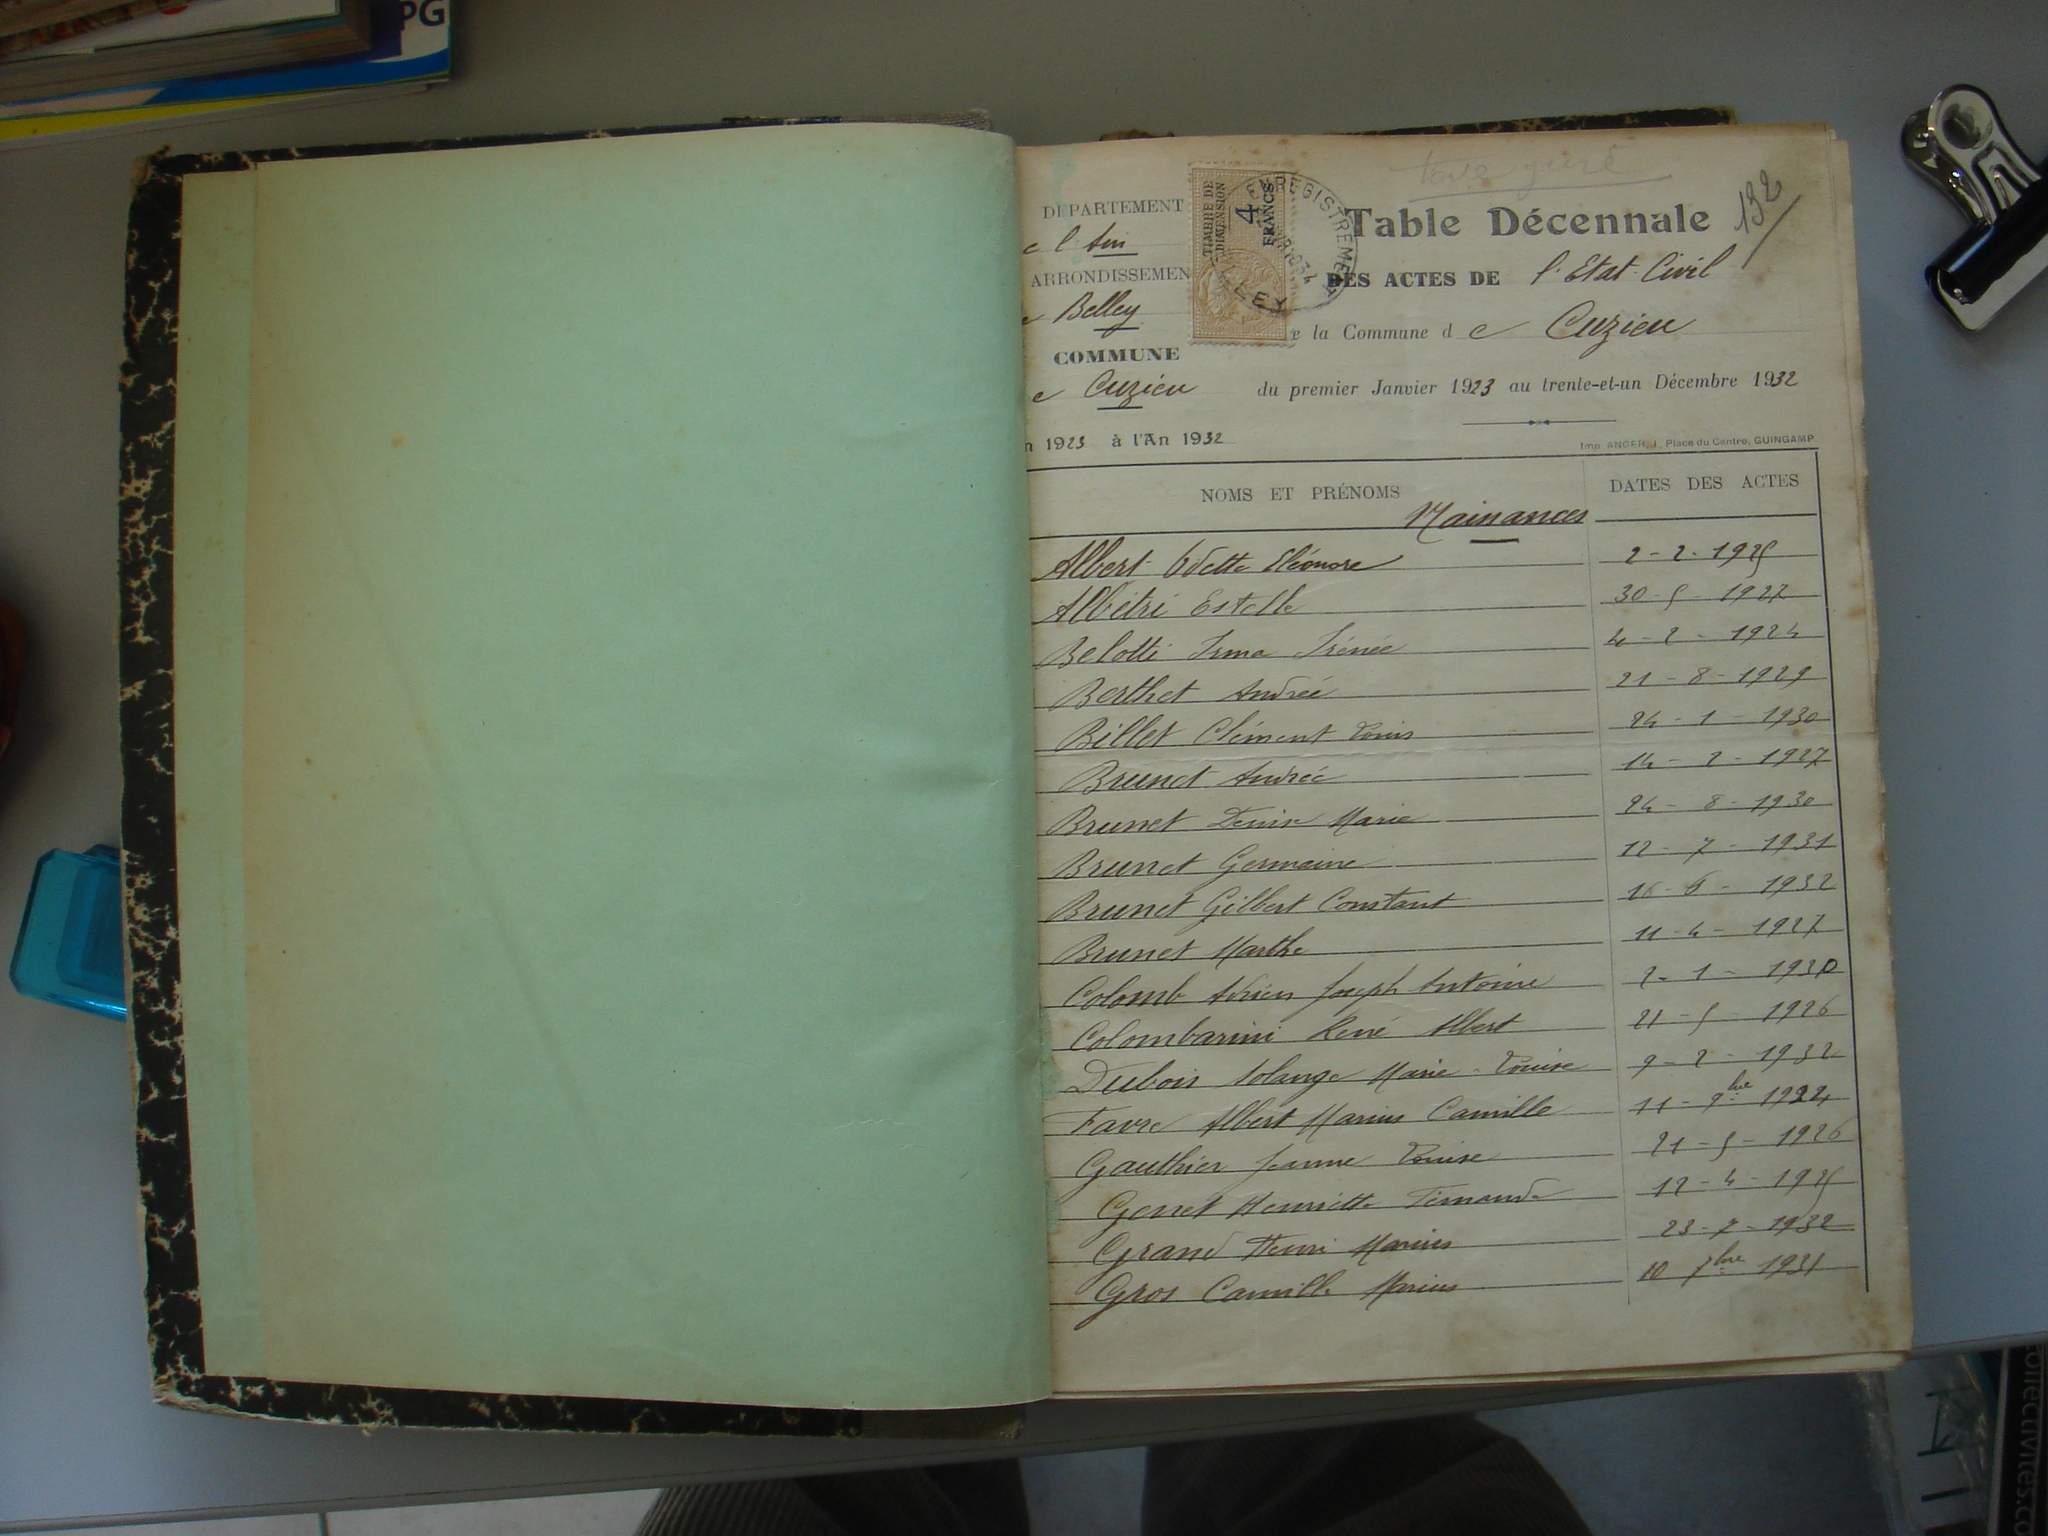 PG
DÉPARTEMENT
e l'Ain
ARRONDISSEMEN
e Belley
COMMUNE
e Cuzieu
n 1923 à l'An 1932
TIMBRE DE
DIMENSION
4
FRANCS
ENREGISTREMENT
1934
LEY
132
Table Décennale
DES ACTES DE l'Etat-Civil
e la Commune d e Cuzieu
du premier Janvier 1923 au trente-et-un Décembre 1932
Imp. ANGER, 1, Place du Centre, GUINGAMP
NOMS ET PRÉNOMS
DATES DES ACTES
Naissances
Albert Odette Eléonore 2-2-1925
Albétri Estelle 30-5-1927
Belotti Irma Irénée 4-2-1924
Berthet Andrée 21-8-1929
Billet Clément Louis 24-1-1930
Brunet Andrée 14-2-1927
Brunet Denise Marie 24-8-1930
Brunet Germaine 12-7-1931
Brunet Gilbert Constant 16-6-1932
Brunet Marthe 11-4-1927
Colomb Adrien Joseph Antoine 2-1-1930
Colombarini René Albert 21-5-1926
Dubois Solange Marie-Louise 9-2-1932
Favre Albert Marius Camille 11-9bre 1924
Gauthier Jeanne Louise 21-5-1926
Genet Henriette Fernande 12-4-1925
Grand Henri Marius 23-7-1932
Gros Camille Marius 10 7bre 1931